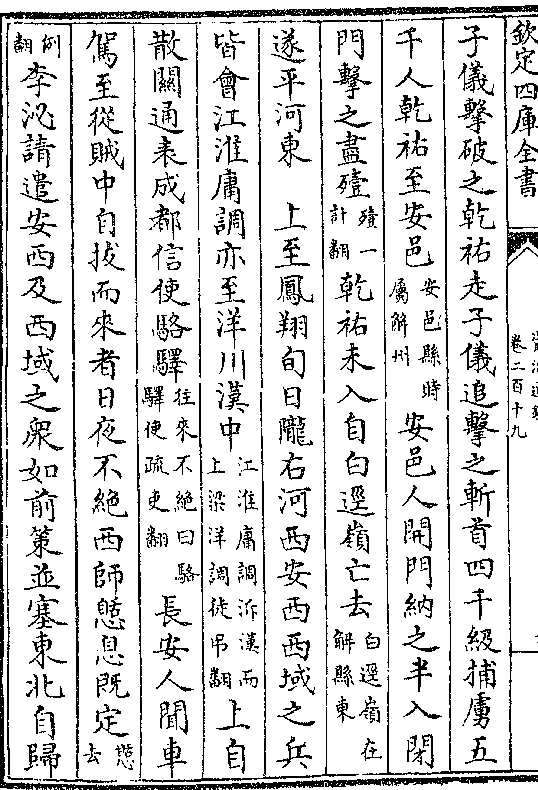 欽定四庫全書
卷二百十九
子儀擊破之乾祐走子儀追擊之斬首四千級捕虜五
千人乾祐至安邑安邑縣時屬解州安邑人開門納之半入閉
門擊之盡殪殪一計翻乾祐未入自白逕嶺亡去白逕嶺在解縣東
遂平河東　上至鳳翔旬日隴右河西安西西域之兵
皆會江淮庸調亦至洋川漢中江淮庸調泝漢而上梁洋調徒弔翻上自
散關通表成都信使駱驛往來不絶曰駱驛使疏吏翻長安人聞車
駕至從賊中自拔而來者日夜不絶西師憇息既定憇去
例翻李泌請遣安西及西域之衆如前策並塞東北自歸